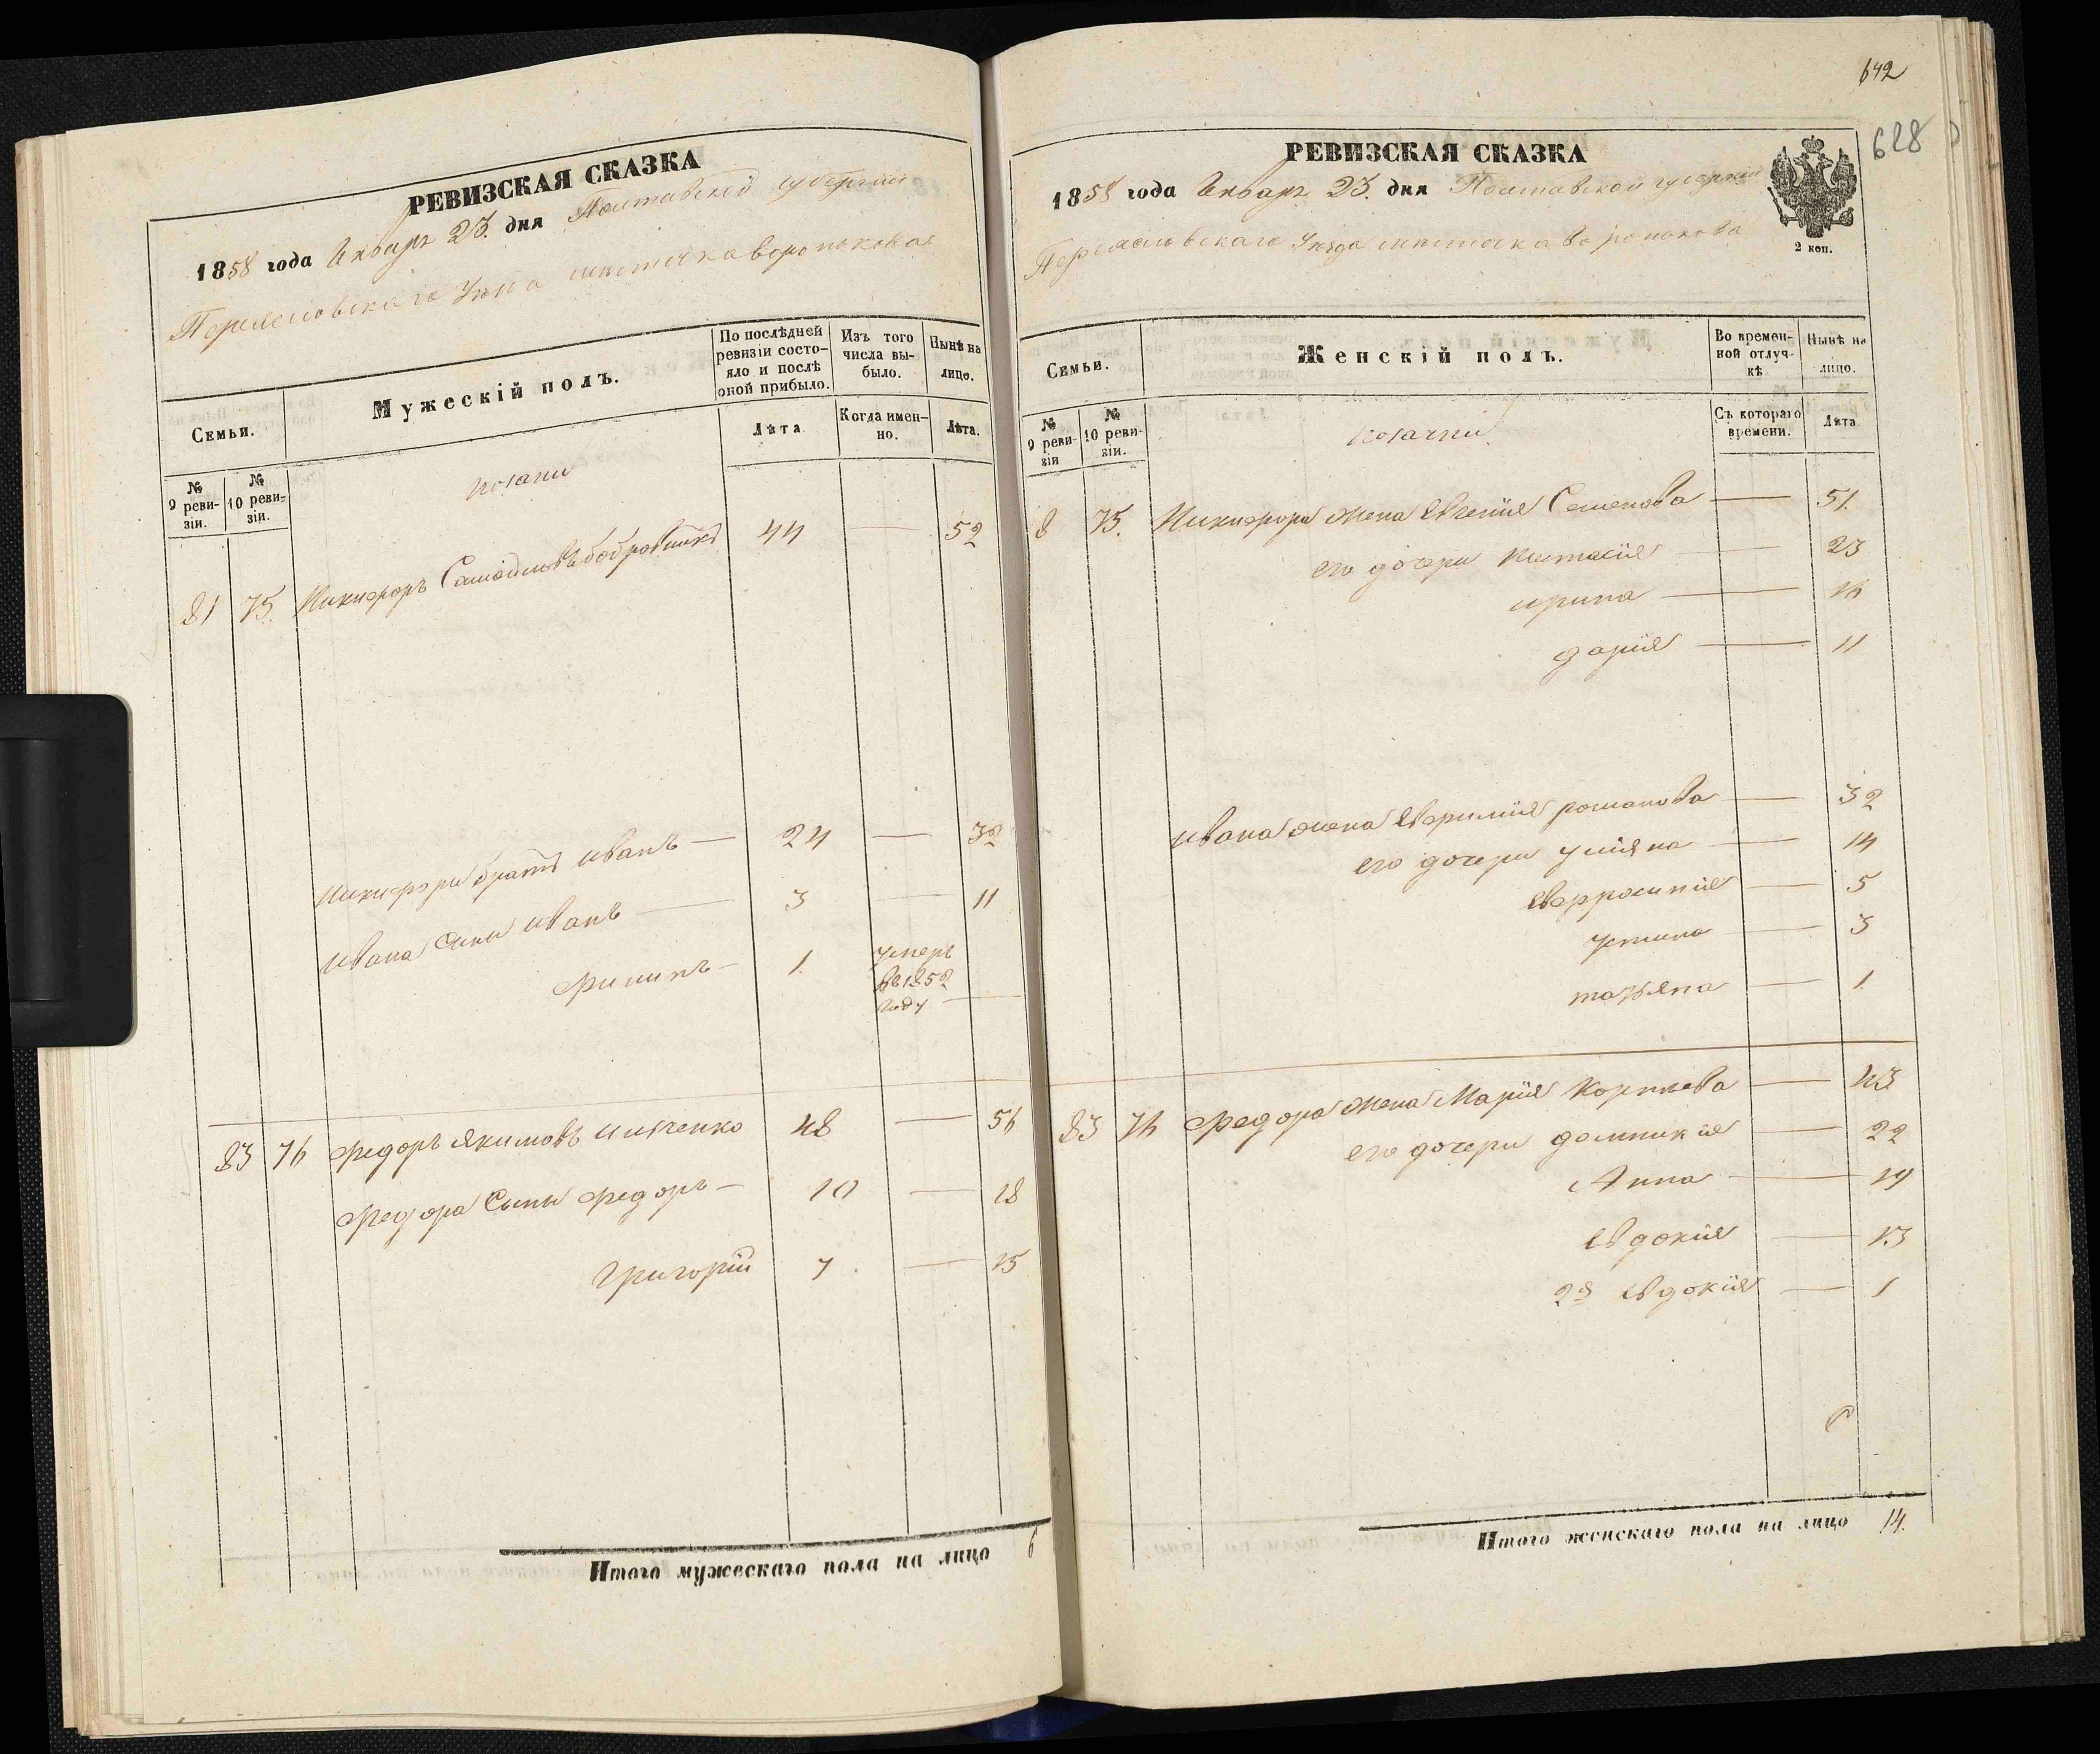 РЕВИЗСКАЯ СКАЗКА
1858 года Января 23. дня Полтавской губернии
Переяславскаго Уезда местечка Воронькова
Семьи.
Мужескій полъ.
По послѣдней ревизіи состо-
яло и послѣ
оной прибыло.
Изъ того
числа вы-
было.
Нынѣ на
лицо.
Лѣта
Когда имен-
но.
Лѣта.
№
9 реви-
зіи.
№
10 реви-
зіи.
козаки
81 75. Никифоръ Самойловъ бобровникъ 44 — 52
Никифора братъ иванъ — 24 — 32
ивана сыны иванъ — 3 — 11
филипъ — 1. умеръ
въ 1852
году —
83 76 федоръ якимовъ 48 — 56
федора Сыны федоръ — 10 — 18
григорій 7. — 15
Итого мужескаго пола на лицо 6
642
628
РЕВИЗСКАЯ СКАЗКА
1858 года Января 23. дня Полтавской губернии
2 коп.
Переяславскаго Уезда местечка Воронькова
Семьи.
Женскій полъ.
Во времен-
ной отлуч-
кѣ
Нынѣ на
лицо.
№
9 реви-
зіи
№
10 реви-
зіи.
Съ котораго
времени.
Лѣта
козачки
8 75. Никифора жена Евгенія Семенова — 51.
его дочери — 23
ирина — 16
дарія — 11
ивана жена Евфимія романова — 32
его дочери уліяна — 14
Евфросинія — 5
устина — 3
татьяна — 1.
83 76 федора жена Марія Корнѣева — 43
его дочери домникія — 22
Анна — 19
Евдокія — 13
2я Евдокія — 1
Итого женскаго пола на лицо 14.